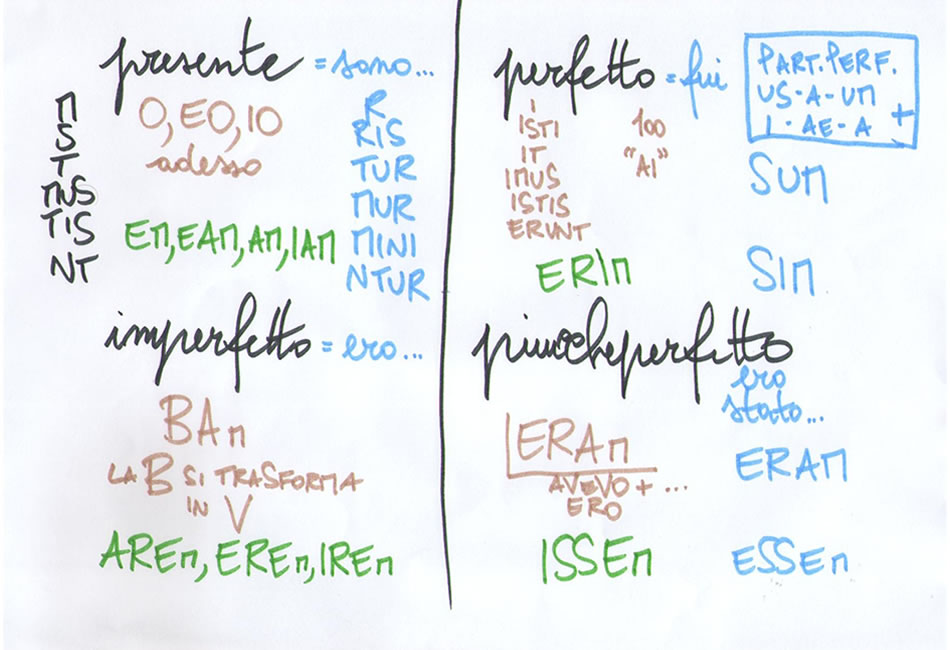 presente = sono...
M
S
T
MUS
TIS
NT
O, EO, IO
adesso
EM, EAM, AM, IAM
R
RIS
TUR
MUR
MINI
NTUR
imperfetto = ero...
BAM
LA B SI TRASFORMA
IN V
AREM, EREM, IREM
perfetto = fui
I
ISTI
IT
IMUS
ISTIS
ERUNT
100
"AI"
ERIM
PART. PERF.
US-A-UM
I-AE-A +
SUM
SIM
piuccheperfetto
ero
stato...
ERAM
AVEVO + ...
ERO
ISSEM
ERAM
ESSEM